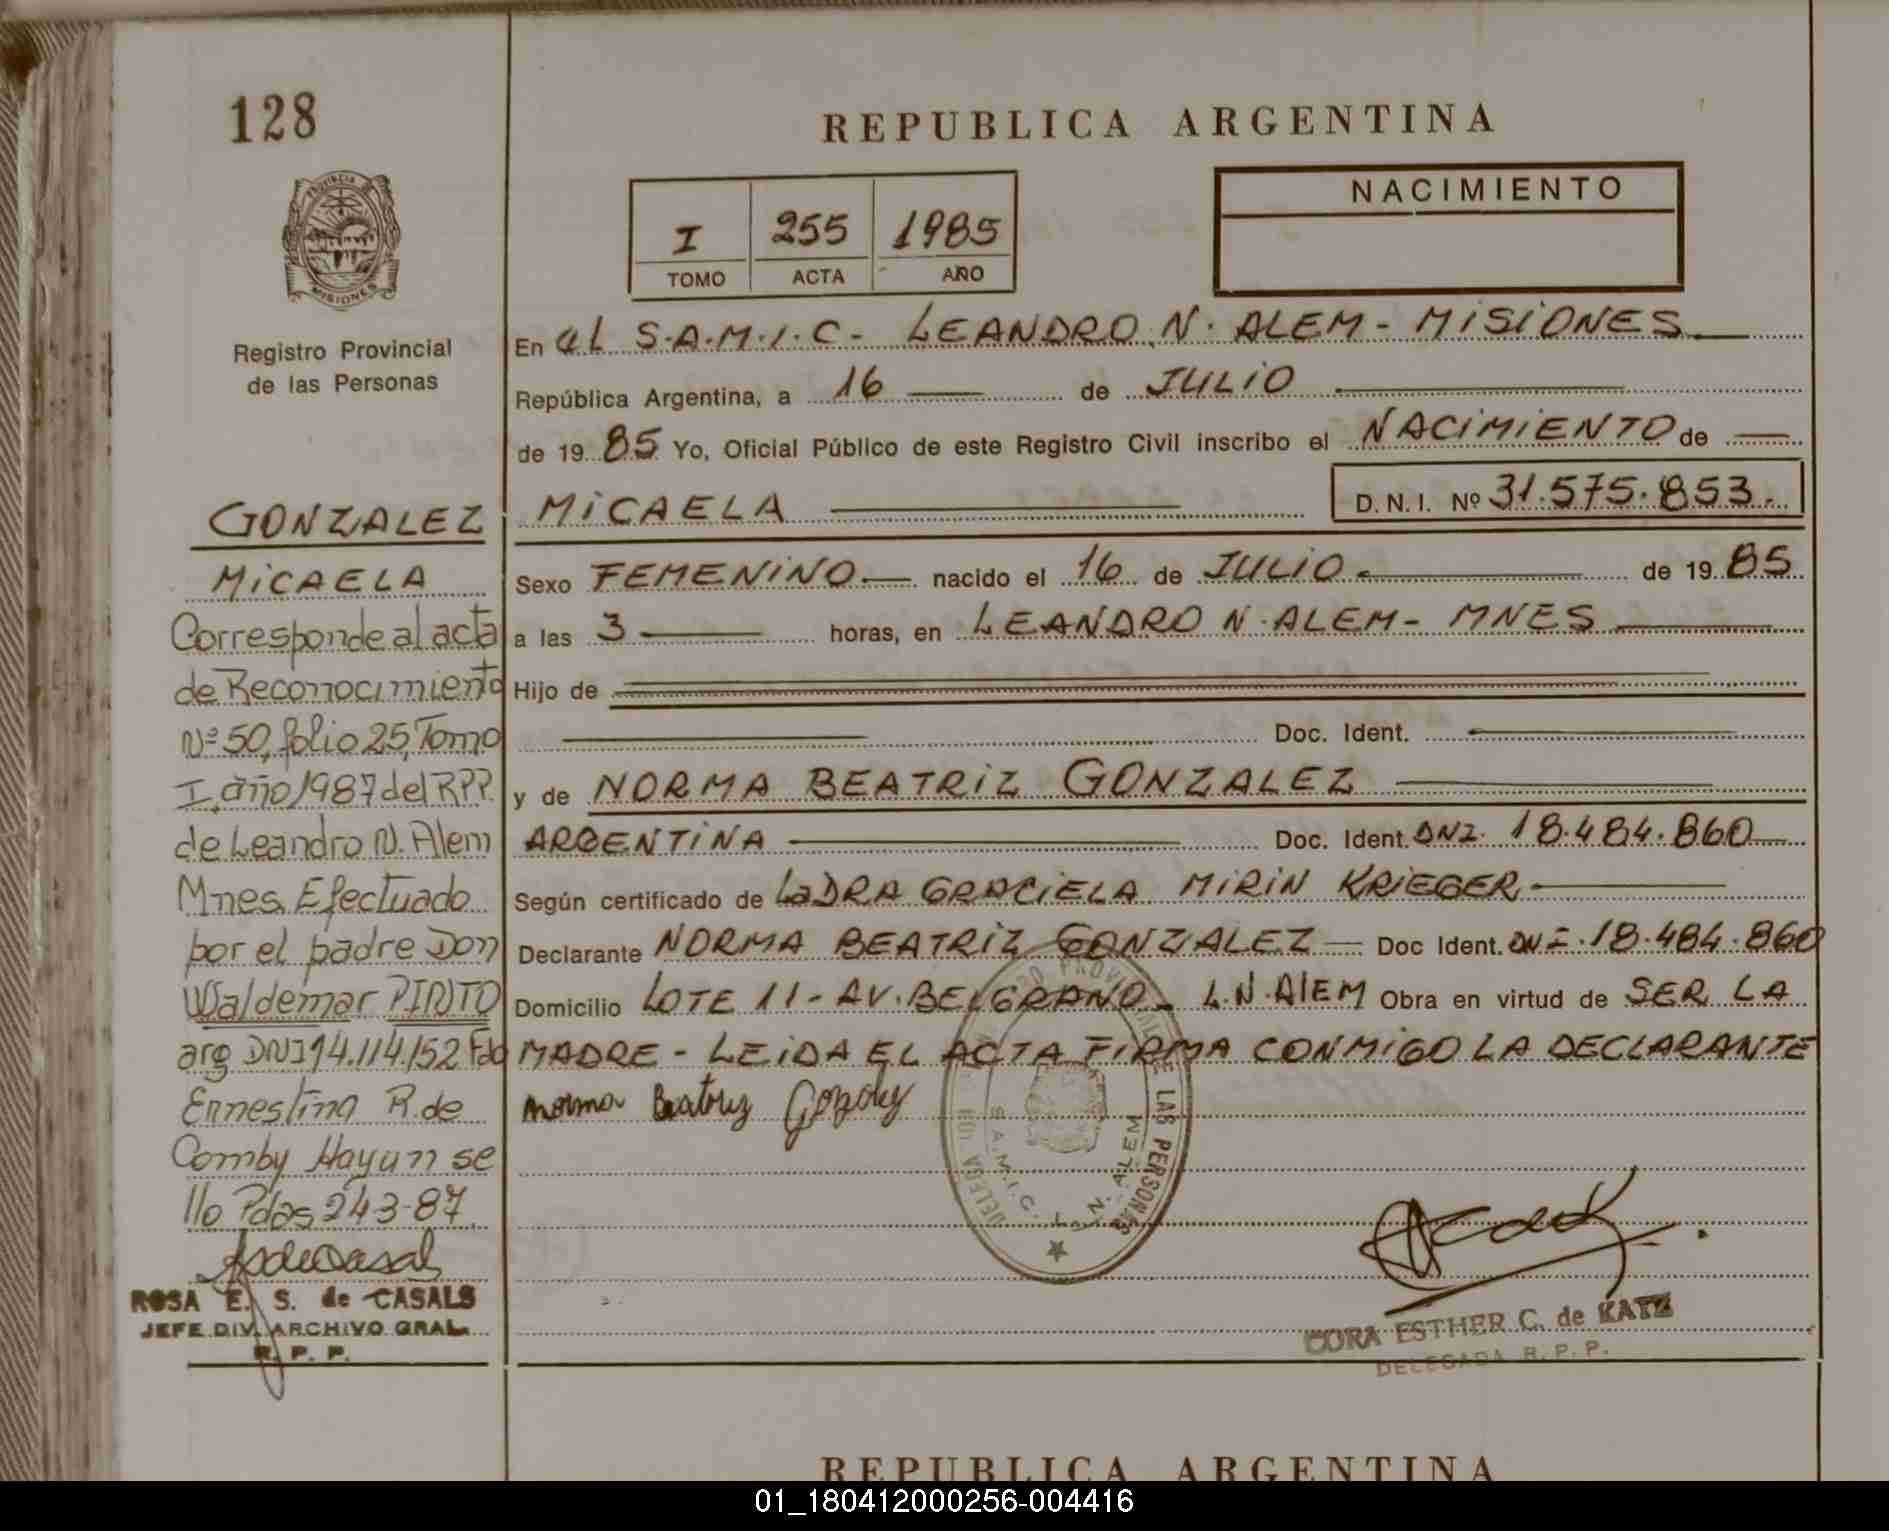 128
REPUBLICA ARGENTINA
PROVINCIA DE
MISIONES
Registro Provincial
de las Personas
I 255 1985
TOMO ACTA AÑO
NACIMIENTO
En el S.A.M.I.C- LEANDRO N. ALEM - MISIONES
República Argentina, a 16 de JULIO
de 19 85 Yo, Oficial Público de este Registro Civil inscribo el NACIMIENTO de
MICAELA D.N.I. Nº 31.575.853.
Sexo FEMENINO nacido el 16 de JULIO de 19 85
a las 3 horas, en LEANDRO N. ALEM - MNES
Hijo de
Doc. Ident.
y de NORMA BEATRIZ GONZALEZ
ARGENTINA Doc. Ident. DNI. 18.484.860
Según certificado de La DRA GRACIELA MIRIN KRIEGER
Declarante NORMA BEATRIZ GONZALEZ Doc Ident. DNI. 18.484.860
Domicilio LOTE 11 - AV. BELGRANO - L.N.AlEM Obra en virtud de SER LA
MADRE - LEIDA EL ACTA FIRMA CONMIGO LA DECLARANTE
Norma Beatriz Gonzalez
S.A.M.I.C. L. N. ALEM
CORA ESTHER C. de KATZ
DELEGADA R. P. P.
GONZALEZ
MICAELA
Corresponde al acta
de Reconocimiento
Nº 50, folio 25, Tomo
I, año 1987 del RPP.
de Leandro N. Alem
Mnes. Efectuado
por el padre Don
Waldemar PINTO
arg DNI 14.114.152 Fdo
Ernestina R. de
Comby Hay un se
llo Pdas 243-87
ROSA E. S. de CASALS
JEFE DIV. ARCHIVO GRAL.
R. P. P.
REPUBLICA ARGENTINA
01_180412000256-004416